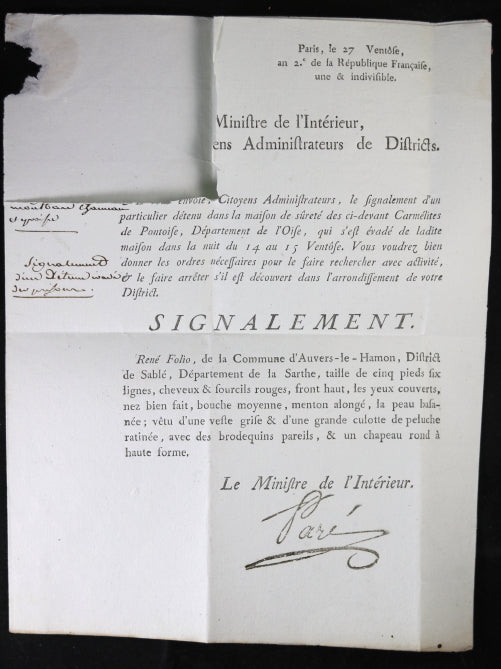 Paris, le 27 Ventôſe,
an 2.e de la République Françaiſe,
une & indiviſible.
Miniſtre de l'Intérieur,
ens Adminiſtrateurs de Diſtricts.
envoie, Citoyens Adminiſtrateurs, le ſignalement d'un
particulier détenu dans la maiſon de sûreté des ci-devant Carmélites
de Pontoiſe, Département de l'Oiſe, qui s'eſt évadé de ladite
maiſon dans la nuit du 14 au 15 Ventôſe. Vous voudrez bien
donner les ordres néceſſaires pour le faire rechercher avec activité,
& le faire arrêter s'il eſt découvert dans l'arrondiſſement de votre
Diſtrict.
Signalement
d'un Détenu évadé
des prisons.
SIGNALEMENT.
René Folio, de la Commune d'Auvers-le-Hamon, Diſtrict
de Sablé, Département de la Sarthe, taille de cinq pieds ſix
lignes, cheveux & ſourcils rouges, front haut, les yeux couverts,
nez bien fait, bouche moyenne, menton alongé, la peau baſa-
née; vêtu d'une veſte griſe & d'une grande culotte de peluche
ratinée, avec des brodequins pareils, & un chapeau rond à
haute forme.
Le Miniſtre de l'Intérieur.
Paré